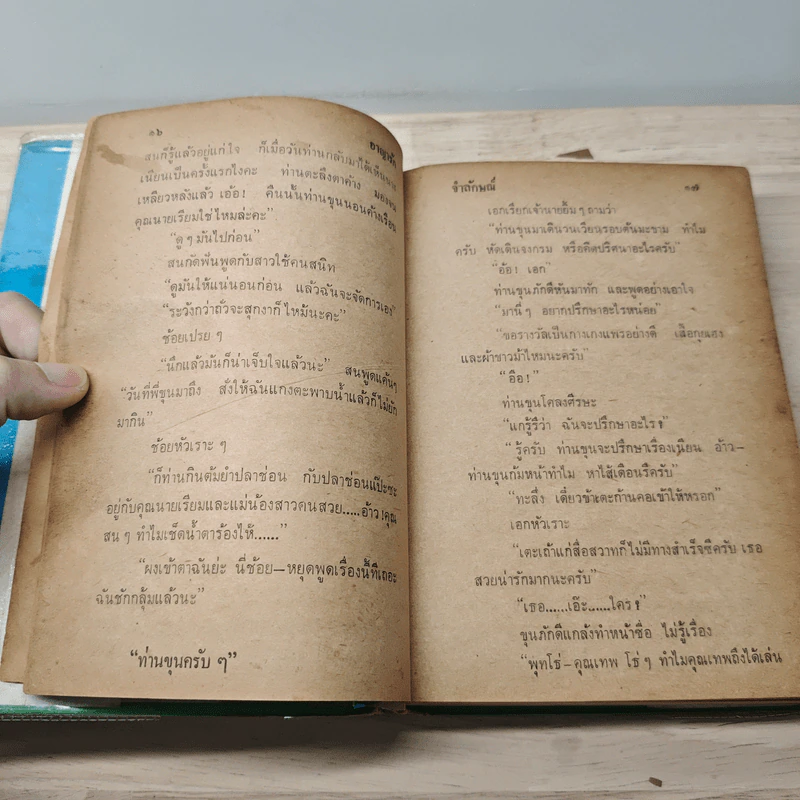 ๑๖
อาญารัก
สนก็รู้แล้วอยู่แก่ใจ ก็เมื่อวันท่านกลับมาได้เดินผ่าน
เนียนเป็นครั้งแรกไงคะ ท่านตะลึงตาค้าง มองจน
เหลียวหลังแล้ว เอ้อ! คืนนั้นท่านขุนนอนค้างเรือน
คุณนายเรียมใช่ไหมล่ะคะ”
“ดู ๆ มันไปก่อน”
สนกัดฟันพูดกับสาวใช้คนสนิท
“ดูมันให้แน่นอนก่อน แล้วฉันจะจัดการเอง”
“ระวังกว่าถั่วจะสุกงาก็ไหม้นะคะ”
ช้อยเปรย ๆ
“นึกแล้วมันก็น่าเจ็บใจแล้วนะ” สนพูดแค้นๆ
“วันที่พี่ขุนมาถึง สั่งให้ฉันแกงตะพาบน้ำแล้วก็ไม่ยัก
มากิน”
ช้อยหัวเราะ ๆ
“ก็ท่านกินต้มยำปลาช่อน กับปลาช่อนแป๊ะซะ
อยู่กับคุณนายเรียมและแม่น้องสาวคนสวย.....อ้าว!คุณ
สน ๆ ทำไมเช็ดน้ำตาร้องไห้......”
“ผงเข้าตาฉันย่ะ นี่ช้อย—หยุดพูดเรื่องนี้ทีเถอะ
ฉันชักกลุ้มแล้วนะ”
“ท่านขุนครับ ๆ”
จำลักษณ์
๑๗
เอกเรียกเจ้านายอึ้ม ๆ ถามว่า
“ท่านขุนมาเดินวนเวียนรอบต้นมะขาม ทำไม
ครับ หัดเดินจงกรม หรือคิดปริศนาอะไรครับ”
“อ้อ! เอก”
ท่านขุนภักดีหันมาทัก และพูดอย่างเอาใจ
“มานี่ ๆ อยากปรึกษาอะไรหน่อย”
“ขอรางวัลเป็นกางเกงแพรอย่างดี เสื้อกุยเฮง
และผ้าขาวม้าไหมนะครับ”
“อือ!”
ท่านขุนโคลงศีรษะ
“แกรู้รึว่า ฉันจะปรึกษาอะไร?”
“รู้ครับ ท่านขุนจะปรึกษาเรื่องเนียน อ้าว—
ท่านขุนก้มหน้าทำไม หาไส้เดือนรึครับ”
“ทะลึ่ง เดี๋ยวข้าเตะก้านคอเข้าให้หรอก”
เอกหัวเราะ
“เตะเถ้าแก่สื่อสวาทก็ไม่มีทางสำเร็จซีครับ เธอ
สวยน่ารักมากนะครับ”
“เธอ......เอ๊ะ......ใคร?”
ขุนภักดีแกล้งทำหน้าซื่อ ไม่รู้เรื่อง
“พุทโธ่—คุณเทพ โธ่ ๆ ทำไมคุณเทพถึงได้เล่น